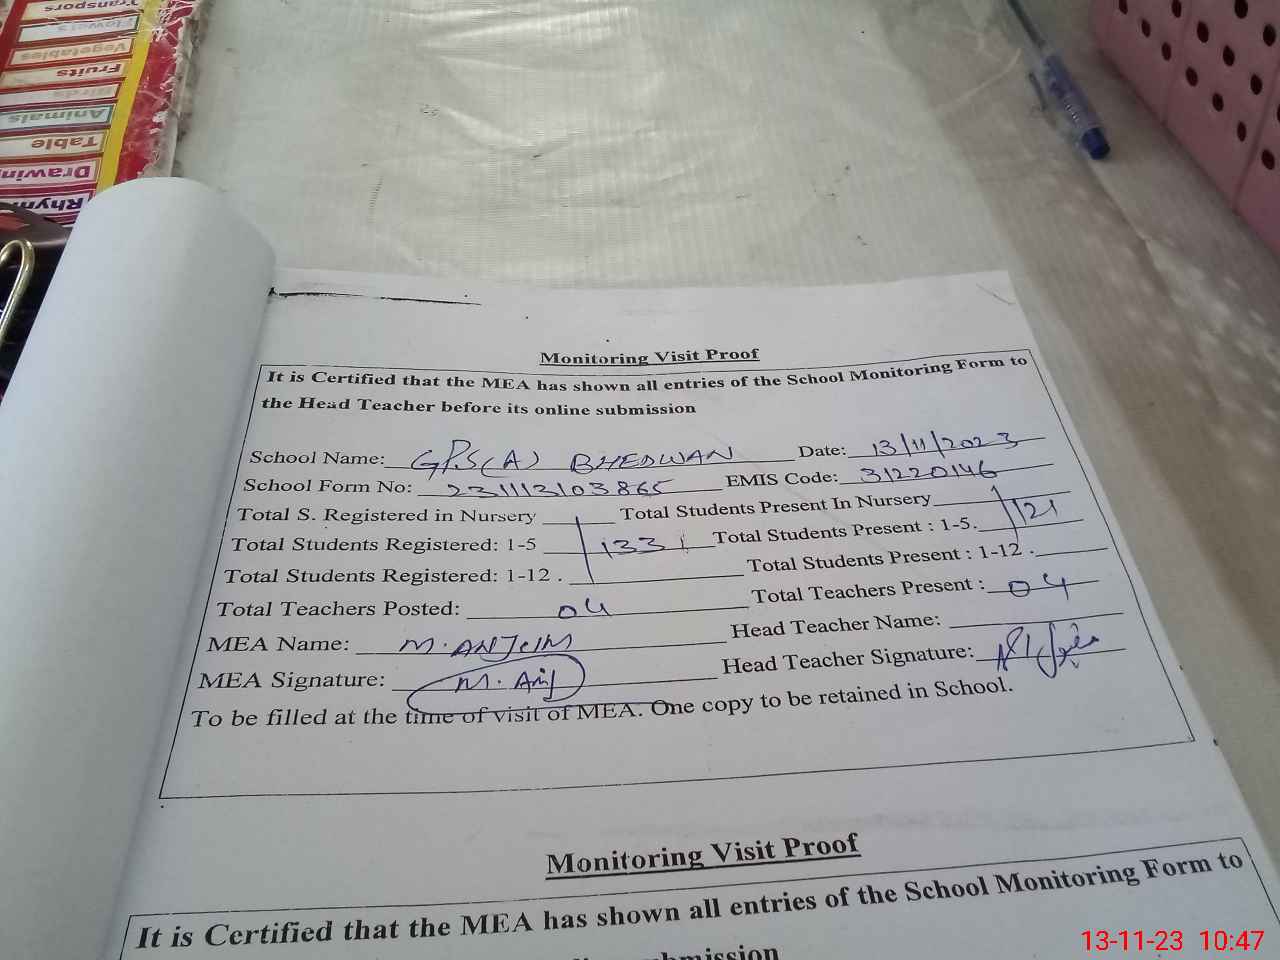 Transpors
Flowers
Vegetables
Fruits
Birds
Animals
Table
Drawin
Rhym
Monitoring Visit Proof
It is Certified that the MEA has shown all entries of the School Monitoring Form to
the Head Teacher before its online submission
School Name: GPS(A) BHEDWAN Date: 13/11/2023
School Form No: 231113103865 EMIS Code: 31220146
Total S. Registered in Nursery Total Students Present In Nursery
Total Students Registered: 1-5 133 Total Students Present : 1-5. 121
Total Students Registered: 1-12 . Total Students Present : 1-12 .
Total Teachers Posted: 04 Total Teachers Present : 04
MEA Name: M. ANJUM Head Teacher Name:
MEA Signature: M. Anj Head Teacher Signature:
To be filled at the time of visit of MEA. One copy to be retained in School.
Monitoring Visit Proof
It is Certified that the MEA has shown all entries of the School Monitoring Form to
submission
13-11-23 10:47